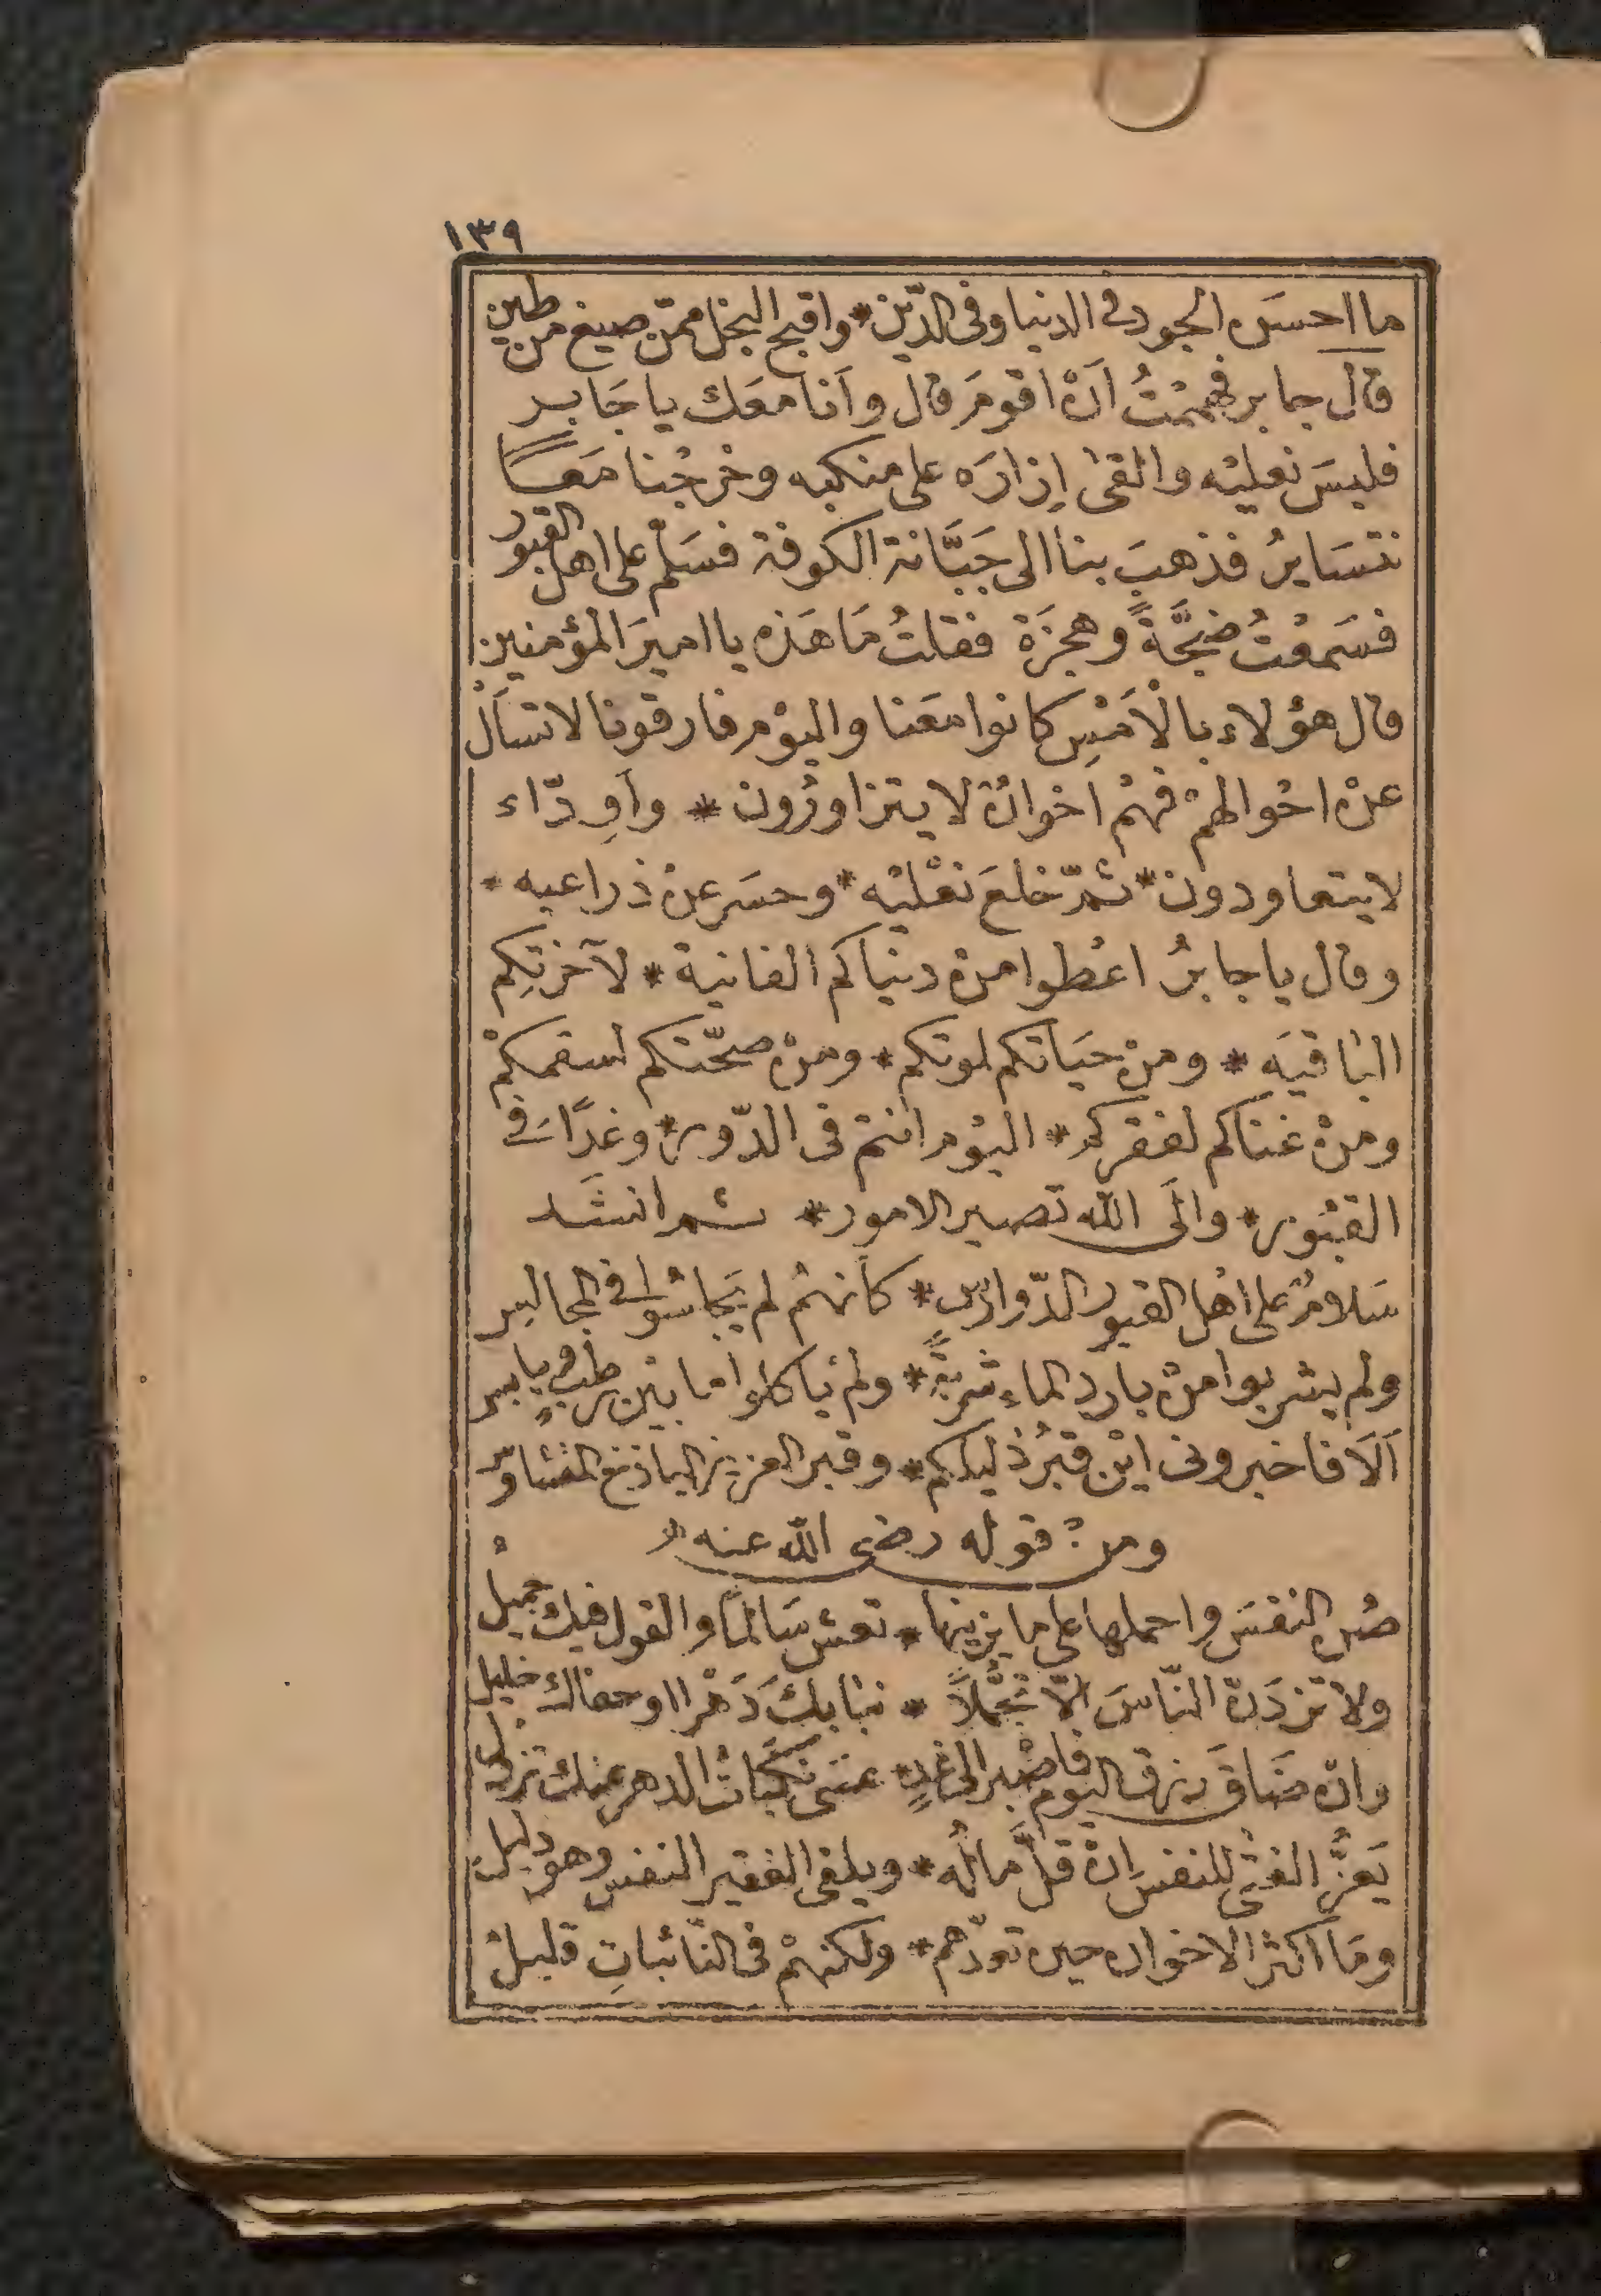 ١٣٩
ما احسَن الجود فى الدنيا وفى الدّين * واقبح البخل ممّن صيغ من طين
قال جابر فهممْتُ اَنْ اقومَ قال واَنا معَك يا جَابر
فلبسَ نعليْه والْقىٰ اِزارَه على منكبه وخرجْنا مَعًا
نتسَايرُ فذهبَ بنا الى جَبَّانة الكوفة فسَلّم على اهل القبور
فسَمعْتُ ضَجَّةً وهجَزَة فقلتُ مَا هَذه يا اميرَ المؤمنين
قال هؤلاء بالْاَمْسِ كانوا معَنا واليوْم فارقونا لا تسأَلْ
عنْ احْوالهمْ فهمْ اخوانٌ لا يتزاورُون * واَوِدّاء
لا يتعاودون * ثمّ خلعَ نعْليْه * وحسَر عنْ ذراعيه *
وقال يا جابرُ اعْطوا منْ دنياكم الفانية * لآخرتِكم
الباقيَه * ومنْ حيَاتكم لموتكم * ومنْ صحّتكم لسقمكمْ
ومنْ غناكم لفقركم * اليوْم انتم فى الدّور * وغدًا فى
القبُور * والَى الله تصير الامور * ثم انشَد
سَلامٌ على اهْل القبور الدّوارس * كأنهمْ لم يَجلسُوا فى المجالس
ولم يشربوا منْ بارد الماء شربةً * ولم يَاكلوا ما بيْن رطبٍ ويابس
اَلَا فاخبرونى ايْن قبْرُ ذليلكم * وقبر العزيز الباذخ المتشاوس
ومنْ قوله رضى الله عنه
صُن النفسَ واحملها على ما يزينها * تعش سَالماً والقول فيك جميل
ولا تُرِيَنّ النّاسَ الّا تجمُّلاً * نبَا بكَ دَهْرٌ او جفاك خليل
وانْ ضَاقَ رزق اليوم فاصْبر الى غدٍ * عسَى نكَبَاتُ الدهر عنك تزول
يَعزُّ الغنىّ للنفس انْ قلَّ مالُه * ويلقى الفقير النفس وهو ذليل
ومَا اكثر الاخوان حين تعدّهم * ولكنهمْ فى النّائباتِ قليلْ